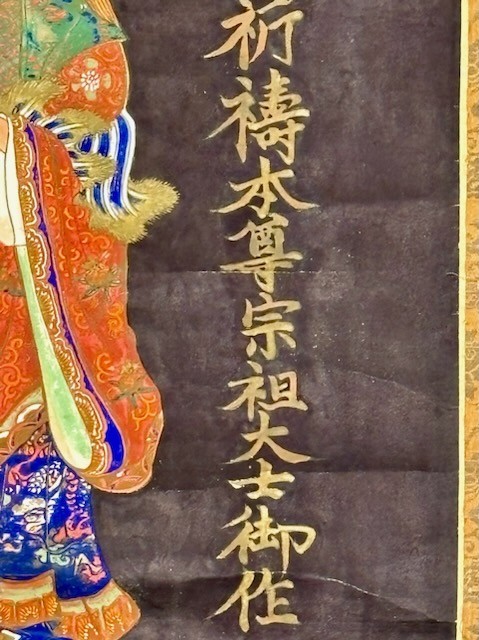 祈禱本尊宗祖大士御作